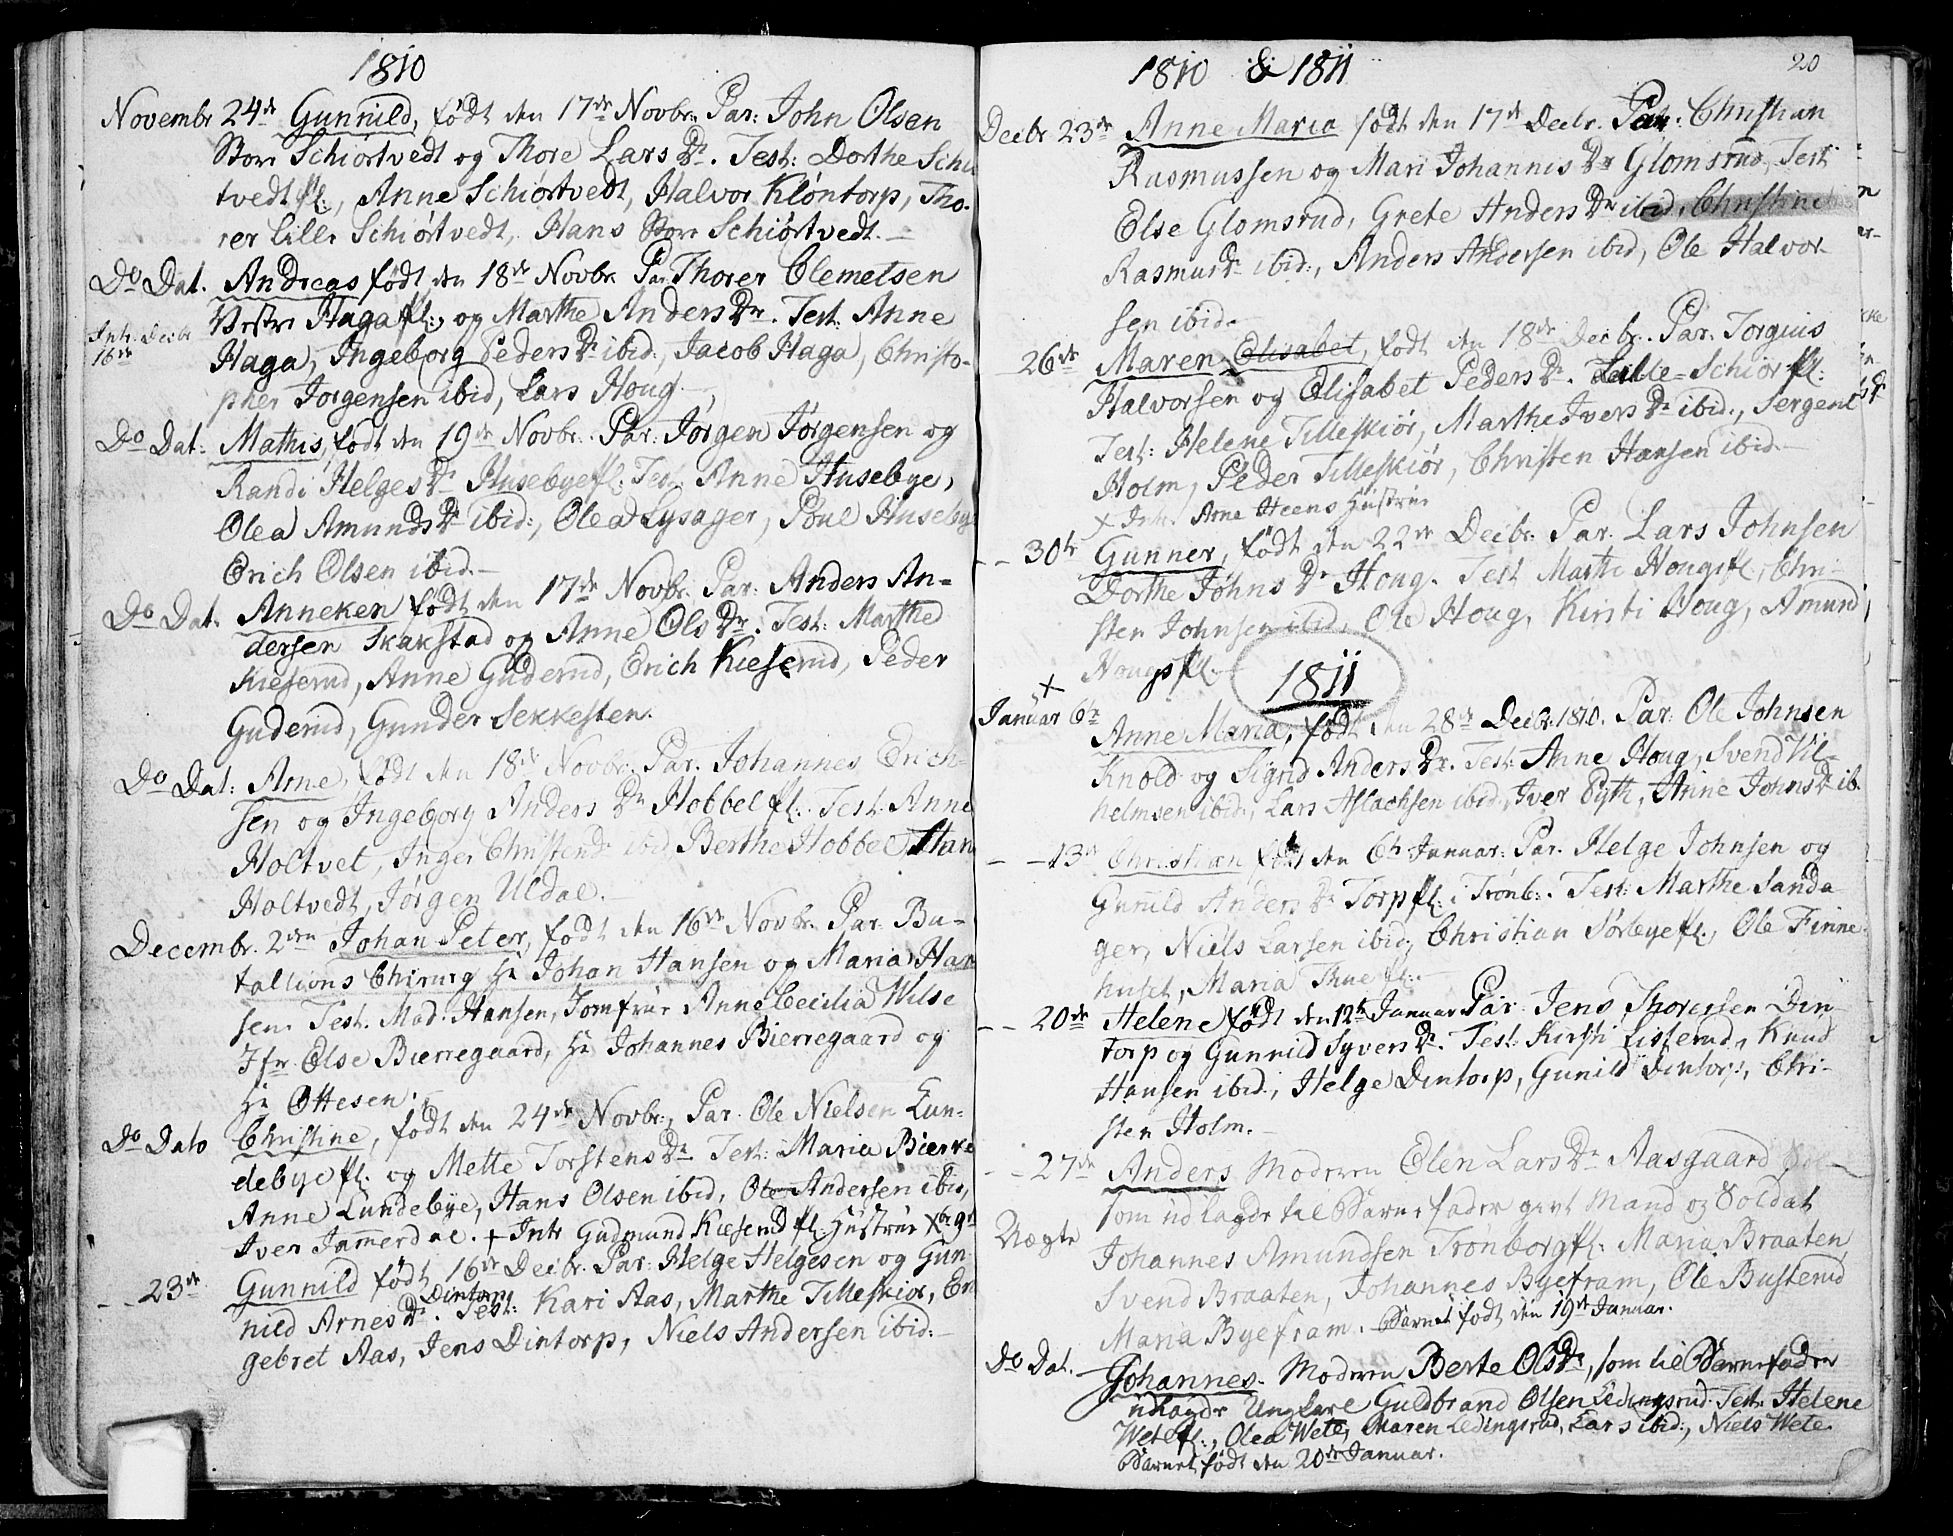 1810
Novembr 24de Gunnild, født den 17de Novbr. Par: John Olsen
Store Schiørtvedt og Thore Lars Dr. Test: Dorthe Schiør
tvedt pl:, Anne Schiørtvedt, Halvor Kløntorp, Tho-
rer Lille Schiørtvedt, Hans Store Schiørtvedt.
Do Dat. Andreas født den 18de Novbr Par Thorer Clemetsen
Intr. Decbr Vestre Haga pl:, og Marthe Anders Dr. Test: Anne
16de Haga, Ingeborg Peders Dr ibid:, Jacob Haga, Christo-
pher Jorgensen ibid, Lars Houg.
Do Dat: Mathis, født den 19de Novbr. Par: Jørgen Jørgensen og
Randi Helges Dr Husebye pl: Test: Anne Husebye,
Olea Amunds Dr ibid:, Olea Lysager, Poul Husebye
Erich Olsen ibid.
Do Dat. Anneken født den 17de Novbr. Par: Anders An-
dersen Skakstad og Anne Ols Dr. Test: Marthe
Kieserud, Anne Guderud, Erich Kieserud, Peder
Guderud, Gunder Sekkesten.
Do Dat: Arne, født den 18de Novbr. Par. Johannes Erich-
sen og Ingeborg Anders Dr Hobbel pl: Test: Anne
Holtvet, Inger Christens Dr ibid Berthe Hobbel, Han
Holtvedt, Jørgen Uldal.
Decembr. 2den Johan Peter, født den 16de Novbr. Par. Ba-
tallions Chirurg Hr Johan Hansen og Maria Han
sen. Test. Mad. Hansen, Jomfrue Anne Cecilia Wilse
Jfr Else Bierregaard, Hr Johannes Bierregaard og
Hr Ottesen.
Do Dato Christine, født den 24de Novbr., Par. Ole Nielsen Lun-
debye pl. og Mette Torstens Dr Test: Maria Bierke
Anne Lundebye, Hans Olsen ibid, Ole Andersen ibid,
Iver Jammerdal. + Intr Gudmund Kieserud pl: Hustrue Xbr 9de
- - 23de Gunnild født 16de Decbr. Par: Helge Helgesen og Gun-
Dintorp
nild Arnes Dr. Test: Kari Aas, Marthe Tilleskiør, En
gebret Aas, Jens Dintorp, Niels Andersen ibid:
1810 & 1811
20
Decbr 23de Anne Maria født den 17de Decbr. Par: Christian
Rasmussen og Mari Johannis Dr Glomsrud, Test
Else Glomsrud, Grete Anders Dr ibid, Christine
Rasmus Dr ibid:, Anders Andersen ibid, Ole Halvor-
sen ibid.
26de Maren Elisabet, født den 18de Decbr. Par. Torgius
Halvorsen og Elisabet Peders Dr. Lille-Schiør pl:
Test: Helene Tilleskiør, Marthe Ivers Dr ibid., Sergent
Holm, Peder Tilleskiør, Christen Hansen ibid.
x Intr. Arne Heens Hustrue
- - 30te Gunner, født den 22de Decbr. Par. Lars Johnsen
Dorthe Johns Dr Houg. Test Marthe Hougs pl, Chri-
sten Johnsen ibid, Ole Houg, Kirsti Houg, Amund
Hougs pl.
1811
x
Januar 6te Anne Maria, født den 28de Decbr: 1810. Par: Ole Johnsen
Knold og Sigrid Anders Dr. Test: Anne Houg, Svend Vil-
helmsen ibid:, Lars Aslachsen ibid, Iver Pÿth, Anne Johns Dr ib.
- - 13de Christian født den 6te Januar: Par. Helge Johnsen og
Gunild Anders Dr Torp pl: i Trønb:. Test: Marthe Sanda
ger, Niels Larsen ibid:, Christian Sørbye pl, Ole Finne-
huset, Maria Thue pl:.
- - 20de Helene født den 12te Januar Par: Jens Thoresen Din-
torp og Gunnild Syvers Dr. Test: Kirsti Listerud, Knud
Hansen ibid:, Helge Dintorp, Gunild Dintorp, Chri-
sten Holm.
- - 27de Anders Moderen Elen Lars Dr Aasgaard
som udlagde til Barnefader givt Mand og Soldat
Uægte
Johannes Amundsen Trønborg pl: Maria Braaten
Svend Braaten, Johannes Byefram, Ole Busterud
Maria Byefram. Barnet født den 19de Januar.
Do Dat. Johannes. Moderen Berte Ols Dr, som til Barnefader
udlagde Ungkarl Guldbrand Olsen Ledingsrud. Test. Helene
Wete pl:, Olea Wete, Maren Ledingsrud, Lars ibid:, Niels Wete.
Barnet født den 20de Januar.